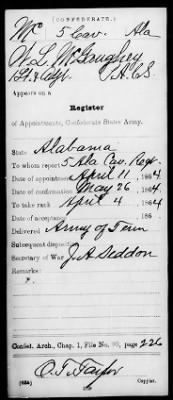 (CONFEDERATE.)
Mc 5 Cav. Ala
W. L. McGaughey
1st Lt & Adjt. P.A.C.S.
Appears on a
Register
of Appointments, Confederate States Army.
State Alabama
To whom report 5 Ala Cav. Regt
Date of appointment April 11 1864
Date of confirmation May 26 1864
To take rank April 4 1864
Date of acceptance 186
Delivered Army of Tenn
Subsequent disposition
Secretary of War J. A. Seddon
Remarks:
Confed. Arch., Chap. 1, File No. 86, page 226
O. T. Taylor
Copyist.